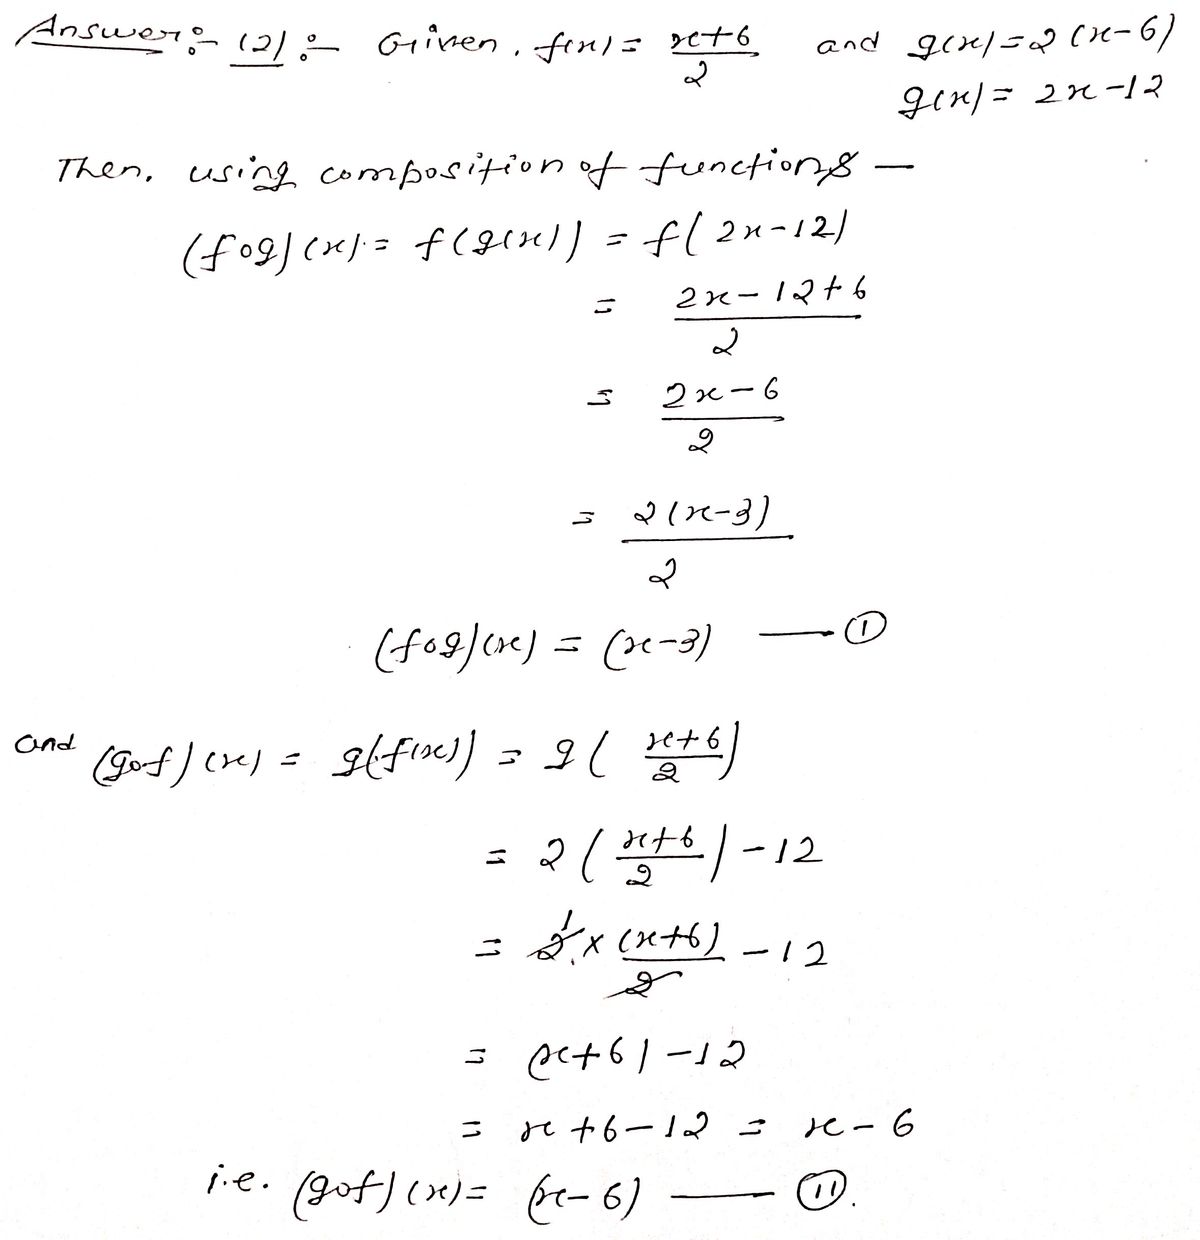 Answer:- (2):- Given, f(x) = x+6/2 and g(x) = 2(x-6)
g(x) = 2x-12
Then, using composition of functions —
(fog)(x) = f(g(x)) = f(2x-12)
= 2x-12+6/2
= 2x-6/2
= 2(x-3)/2
(fog)(x) = (x-3) — ①
and (gof)(x) = g(f(x)) = g(x+6/2)
= 2(x+6/2)-12
= 2 1 × (x+6)/2 -12
= (x+6)-12
= x+6-12 = x-6
i.e. (gof)(x) = (x-6) — ⑪.